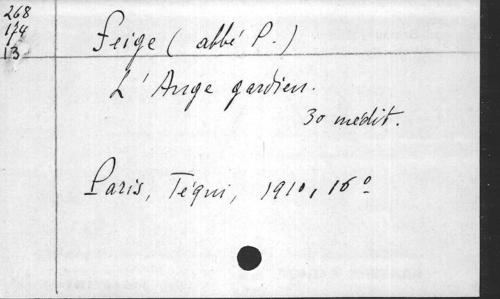 268
174
13
Feige (abbé P.)
L'Ange gardien.
30 médit.
Paris, Téqui, 1910, 16º